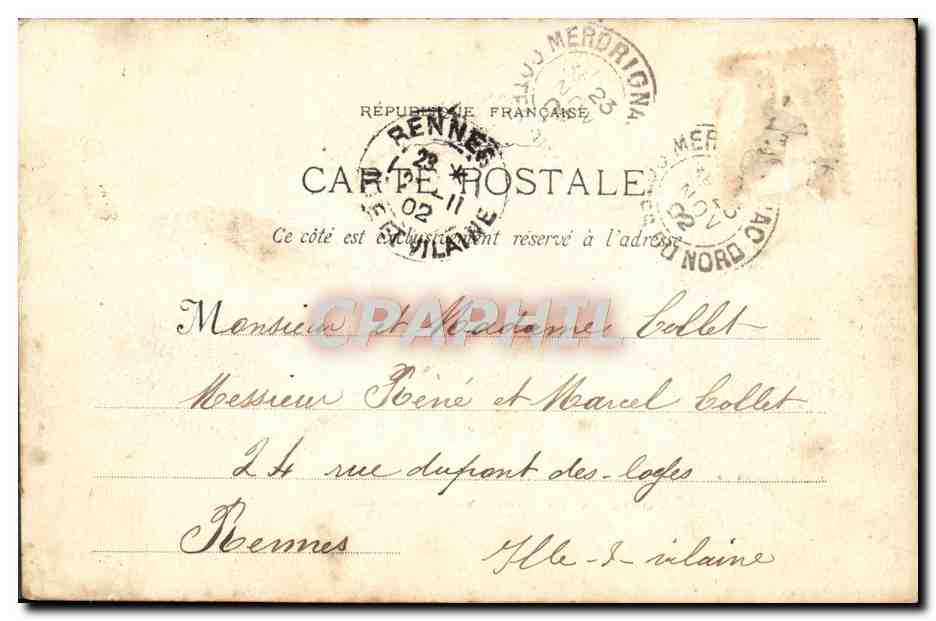 MERDRIGNA
23
NOV
02
RÉPUBLIQUE FRANÇAISE
RENNES
23
11
02
ILLE ET VILAINE
CARTE POSTALE
MER AC
23
NOV
02
DU NORD
Ce côté est exclusivement réservé à l'adresse
Monsieur et Maddames Collet
CPAPHIL
Messieur Réné et Marcel Collet
24 rue dupont des-loges
Rennes Ille-&-vilaine